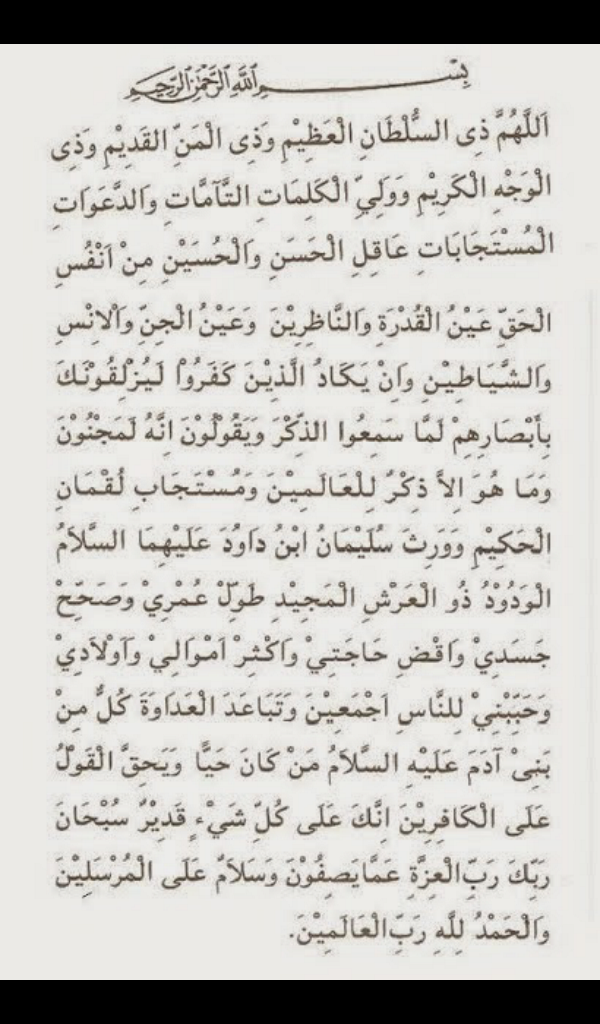 بِسْمِ اللَّهِ الرَّحْمَنِ الرَّحِيمِ
اَللَّهُمَّ ذِى السُّلْطَانِ الْعَظِيْمِ وَذِى الْمَنِّ الْقَدِيْمِ وَذِى
الْوَجْهِ الْكَرِيْمِ وَوَلِيِّ الْكَلِمَاتِ التَّآمَّاتِ وَالدَّعَوَاتِ
الْمُسْتَجَابَاتِ عَاقِلِ الْحَسَنِ وَالْحُسَيْنِ مِنْ اَنْفُسِ
الْحَقِّ عَيْنُ الْقُدْرَةِ وَالنَّاظِرِيْنَ وَعَيْنُ الْجِنِّ وَالْاِنْسِ
وَالشَّيَاطِيْنِ وَاِنْ يَكَادُ الَّذِيْنَ كَفَرُوْا لَيُزْلِقُوْنَكَ
بِأَبْصَارِهِمْ لَمَّا سَمِعُوا الذِّكْرَ وَيَقُوْلُوْنَ اِنَّهُ لَمَجْنُوْنَ
وَمَا هُوَ اِلاَّ ذِكْرٌ لِلْعَالَمِيْنَ وَمُسْتَجَابِ لُقْمَانِ
الْحَكِيْمِ وَوَرِثَ سُلَيْمَانُ ابْنُ دَاوُدَ عَلَيْهِمَا السَّلاَمُ
الْوَدُوْدُ ذُو الْعَرْشِ الْمَجِيْدِ طَوِّلْ عُمْرِيْ وَصَحِّحْ
جَسَدِيْ وَاقْضِ حَاجَتِيْ وَاَكْثِرْ اَمْوَالِيْ وَاَوْلاَدِيْ
وَحَبِّبْنِيْ لِلنَّاسِ اَجْمَعِيْنَ وَتَبَاعَدَ الْعَدَاوَةَ كُلُّ مِنْ
بَنِىْ آدَمَ عَلَيْهِ السَّلاَمُ مَنْ كَانَ حَيًّا وَيَحِقَّ الْقَوْلُ
عَلَى الْكَافِرِيْنَ اِنَّكَ عَلَى كُلِّ شَيْءٍ قَدِيْرٌ سُبْحَانَ
رَبِّكَ رَبِّ الْعِزَّةِ عَمَّا يَصِفُوْنَ وَسَلاَمٌ عَلَى الْمُرْسَلِيْنَ
وَالْحَمْدُ لِلَّهِ رَبِّ الْعَالَمِيْنَ.